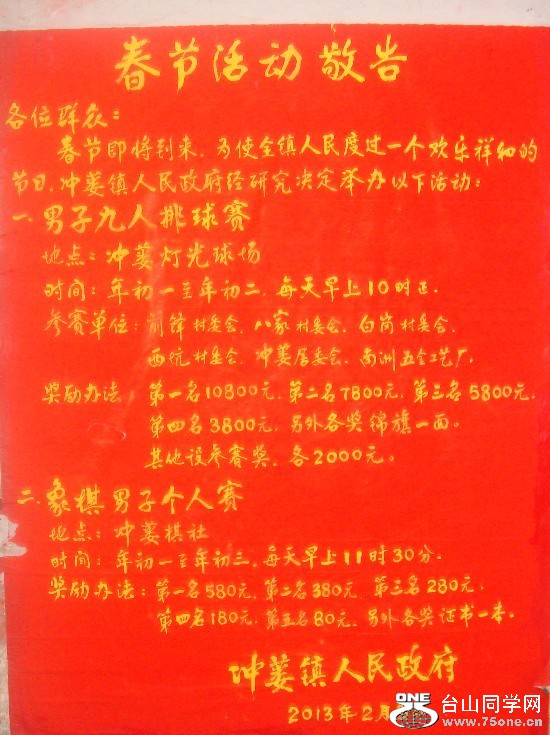 春节活动敬告
各位群众：
春节即将到来，为使全镇人民度过一个欢乐祥和的
节日，冲蒌镇人民政府经研究决定举办以下活动：
一.男子九人排球赛
地点：冲蒌灯光球场
时间：年初一至年初二，每天早上10时正.
参赛单位：前锋村委会、八家村委会、白岗村委会、
西坑村委会、冲蒌居委会、南洲五金工艺厂。
奖励办法：第一名10800元，第二名7800元，第三名5800元，
第四名3800元，另外各奖锦旗一面。
其他设参赛奖，各2000元。
二.象棋男子个人赛
地点：冲蒌棋社
时间：年初一至年初三，每天早上11时30分.
奖励办法：第一名580元，第二名380元，第三名280元，
第四名180元，第五名80元，另外各奖证书一本.
冲蒌镇人民政府
2013年2月
ONE
台山同学网
www.75one.cn